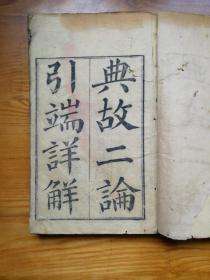 典故二論
引端詳解